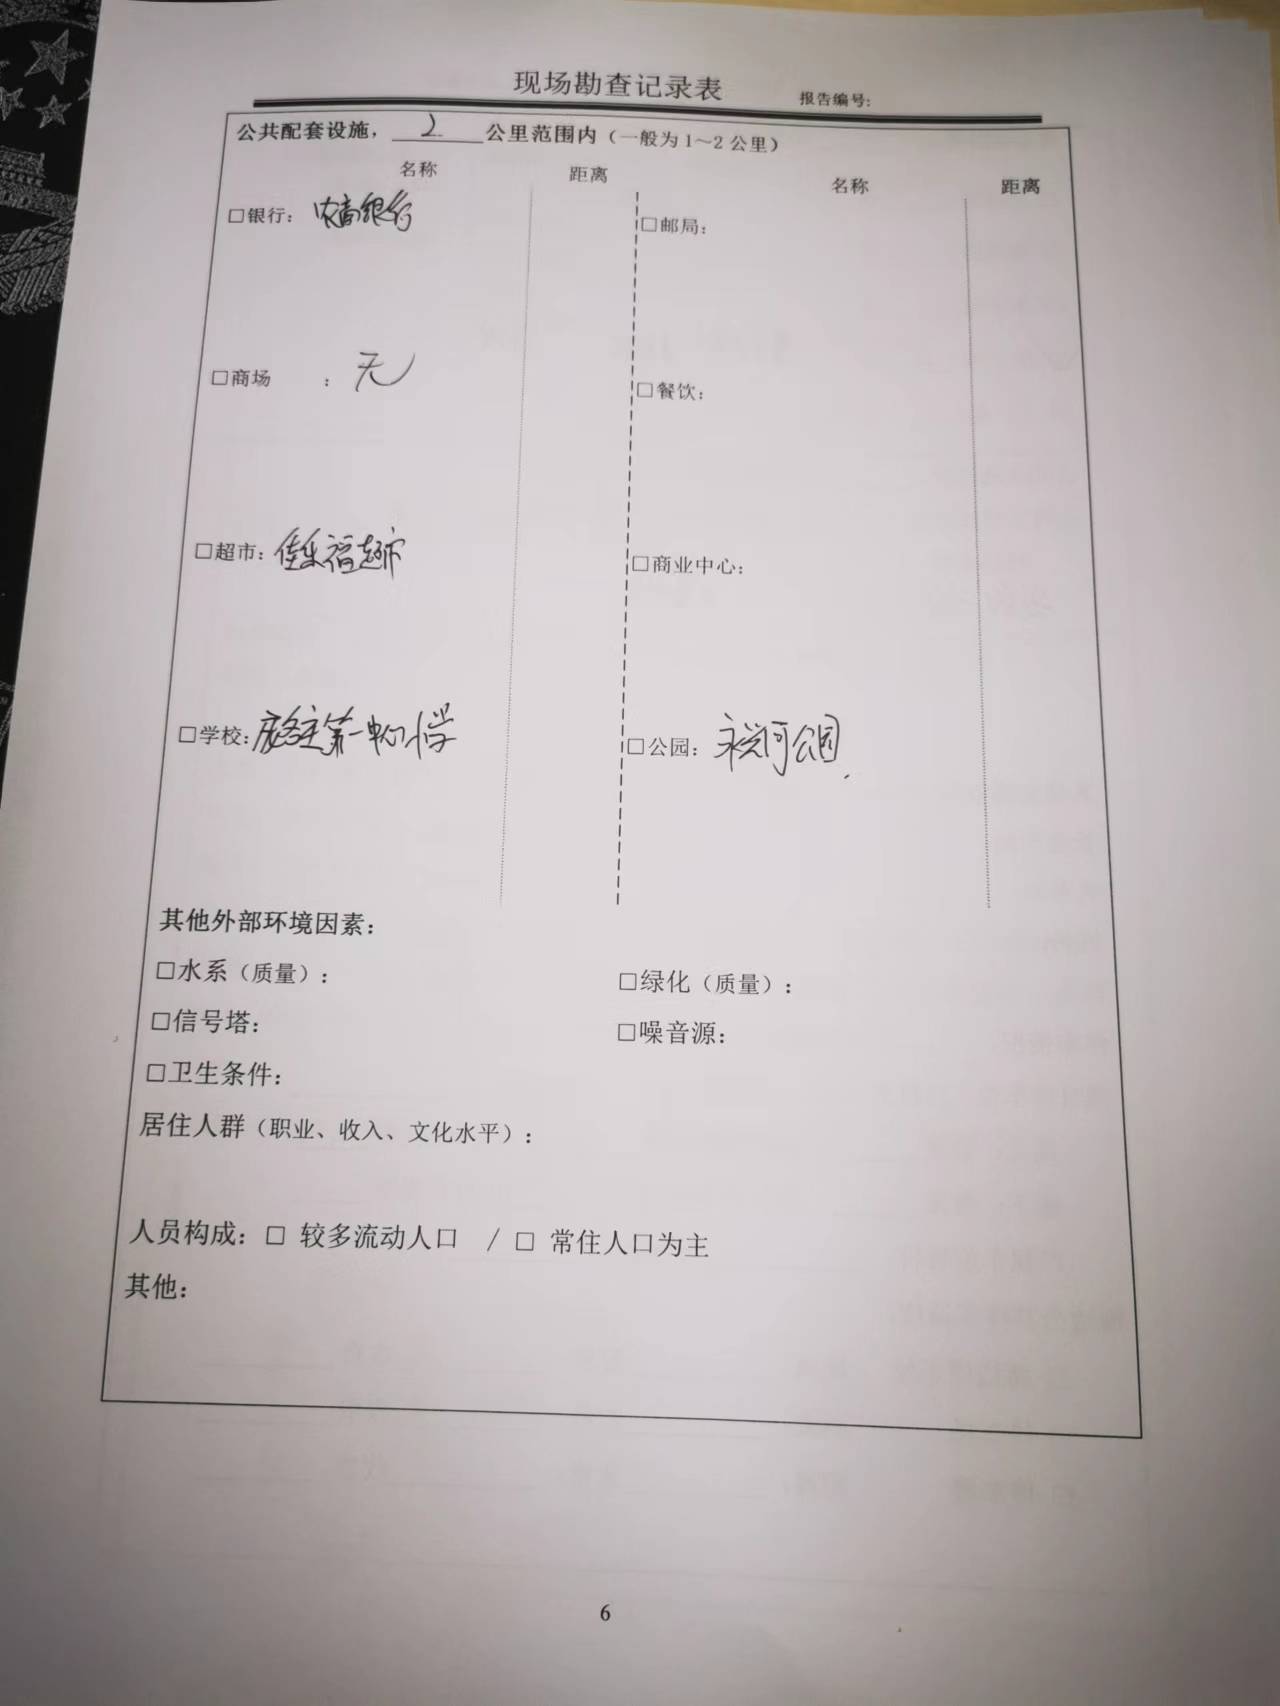 现场勘查记录表 报告编号:
公共配套设施， 2 公里范围内（一般为1～2公里）
名称 距离 名称 距离
□银行： 农商银行 □邮局：
□商场 ： 无 □餐饮：
□超市： 佳乐福超市 □商业中心：
□学校： 第一中心小学 □公园： 永兴河公园
其他外部环境因素：
□水系（质量）： □绿化（质量）：
□信号塔： □噪音源：
□卫生条件：
居住人群（职业、收入、文化水平）：
人员构成：□ 较多流动人口 / □ 常住人口为主
其他：
6